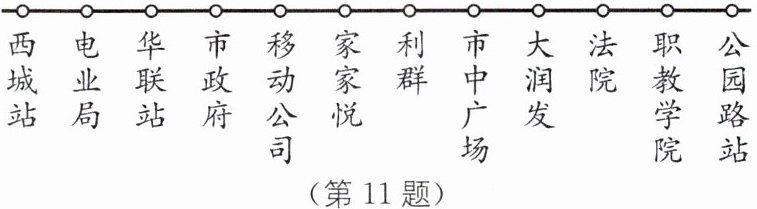 西城站
电业局
华联站
市政府
移动公司
家家悦
利群
市中广场
大润发
法院
职教学院
公园路站
(第11题)